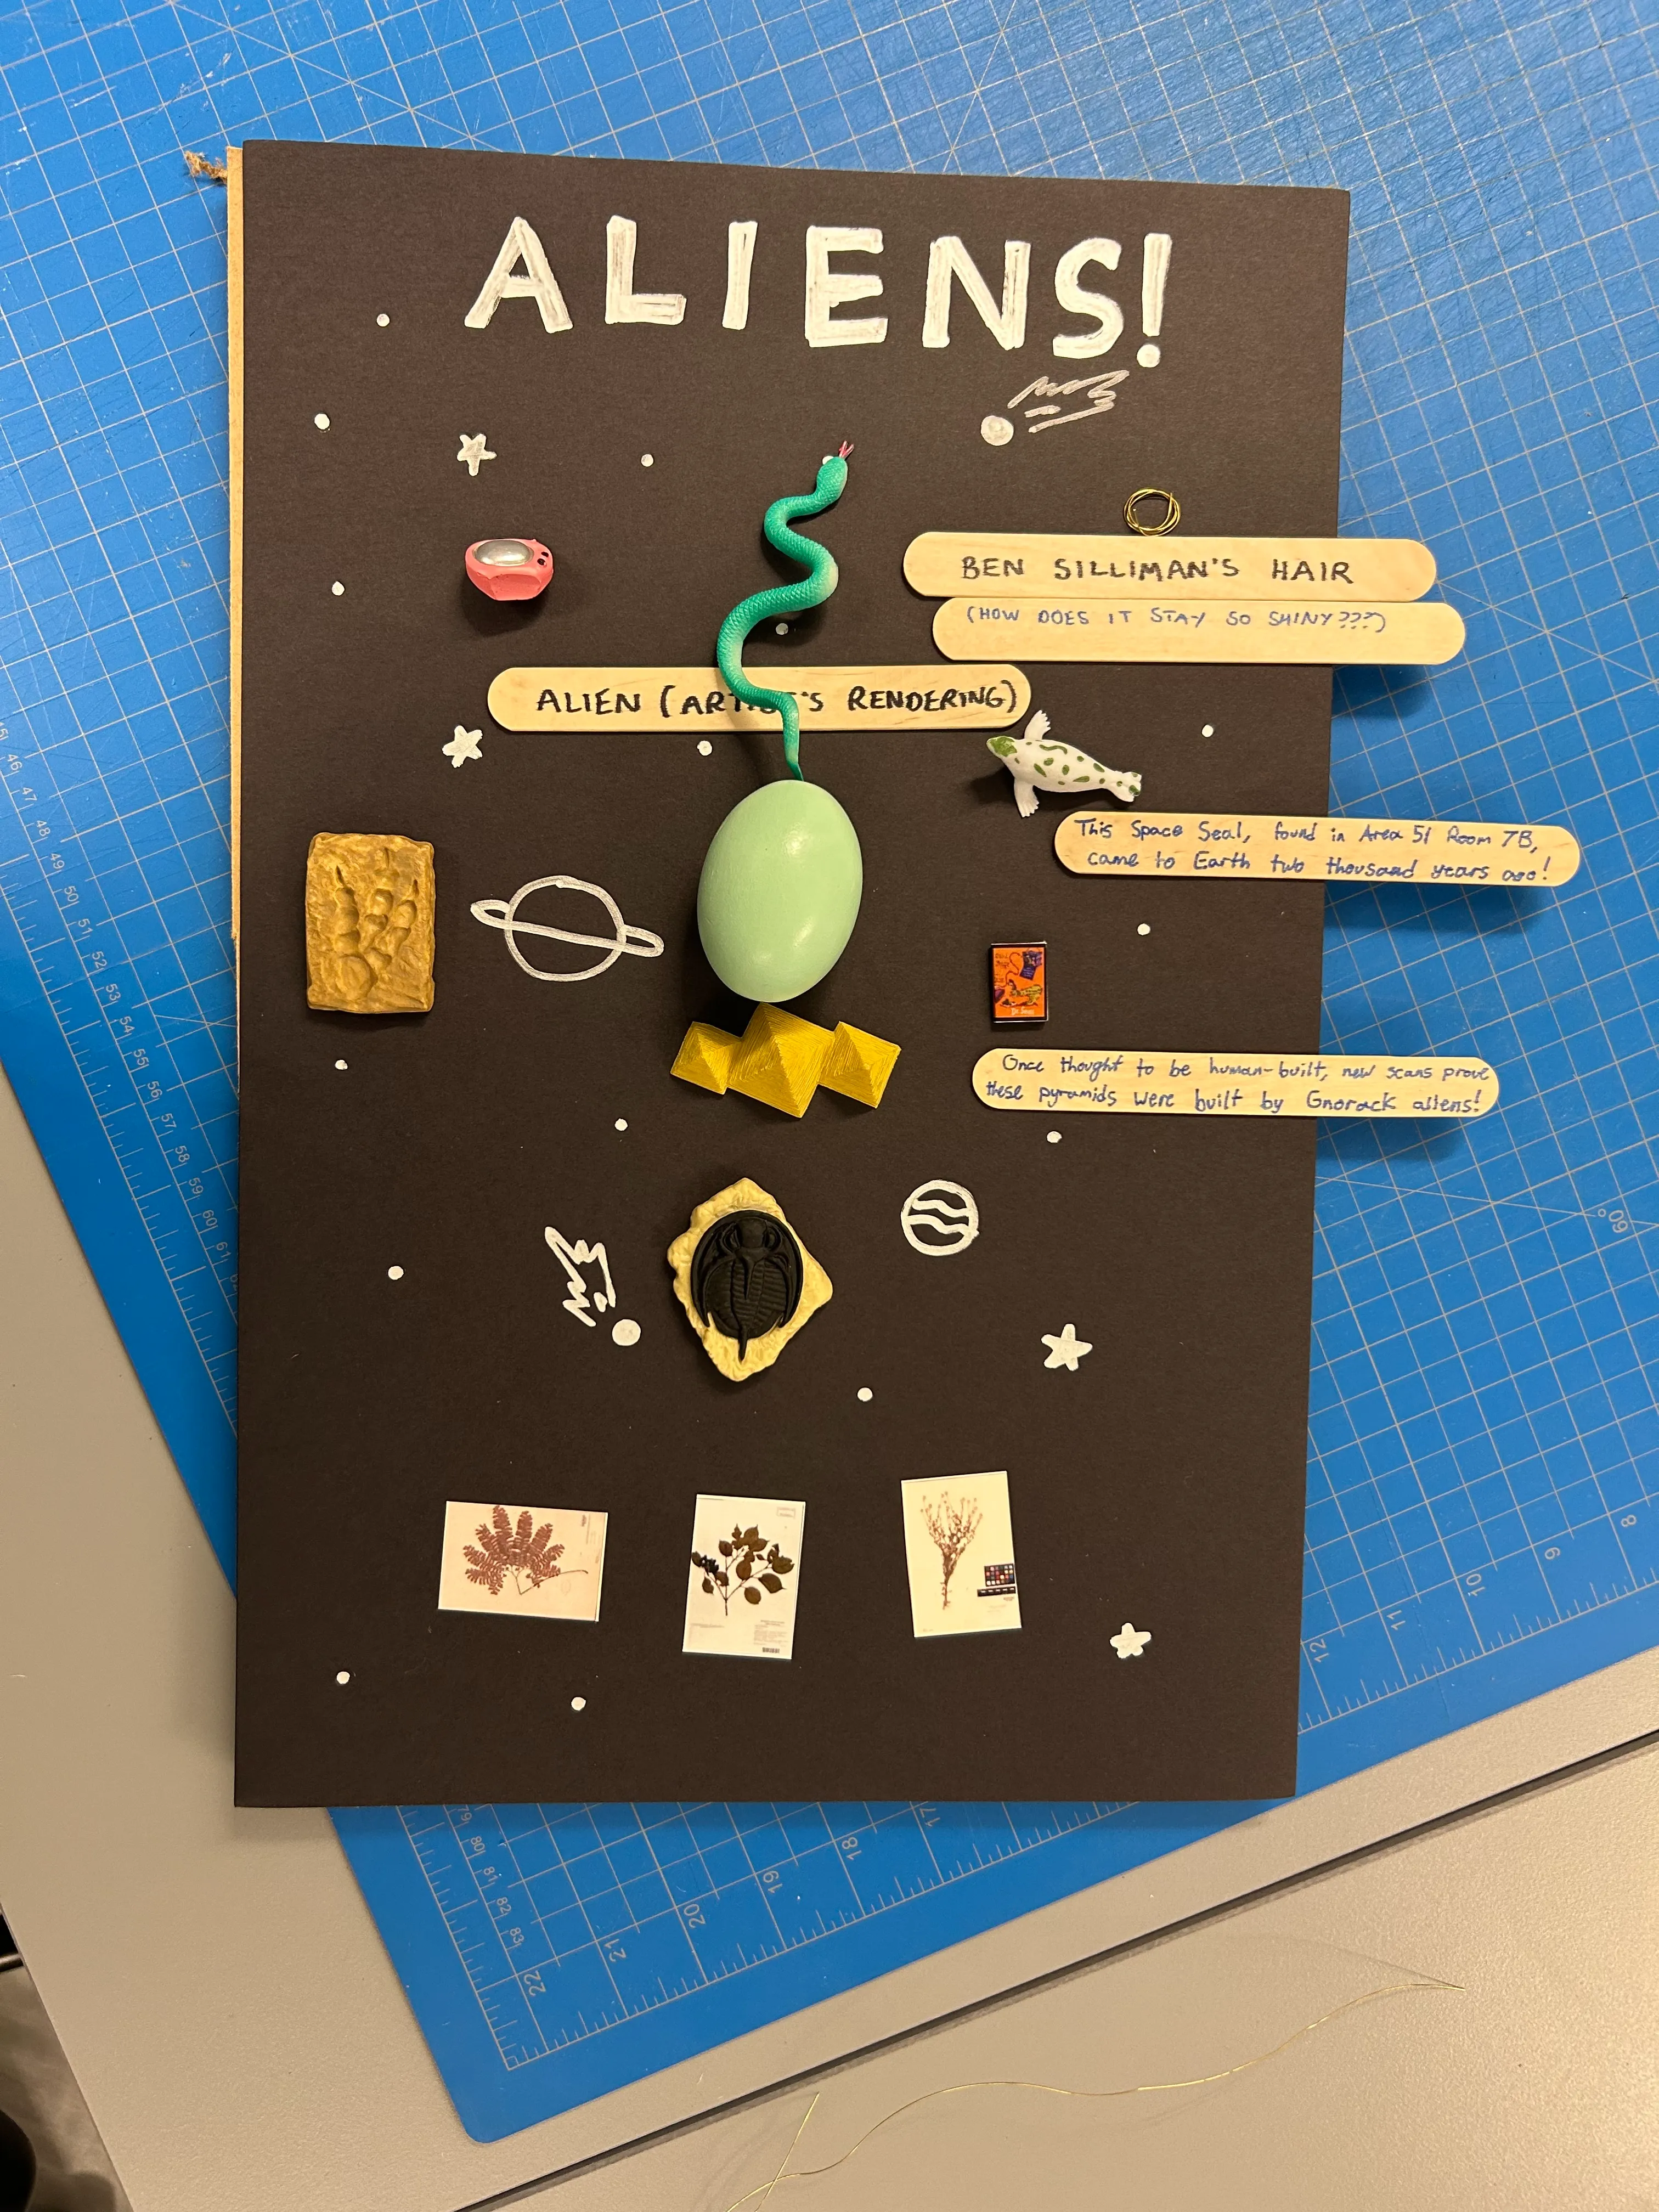 ALIENS!
BEN SILLIMAN'S HAIR
(HOW DOES IT STAY SO SHINY???)
ALIEN (ARTIST'S RENDERING)
This Space Seal, found in Area 51 Room 7B,
came to Earth two thousand years ago!
Dr. Seuss
Once thought to be human-built, new scans prove
these pyramids were built by Gnorack aliens!
46
47
48
49
50
51
52
53
54
55
56
57
58
59
60
61
62
60°
8
9
10
11
12
17
18
19
20
21
22
79
80
81
82
83